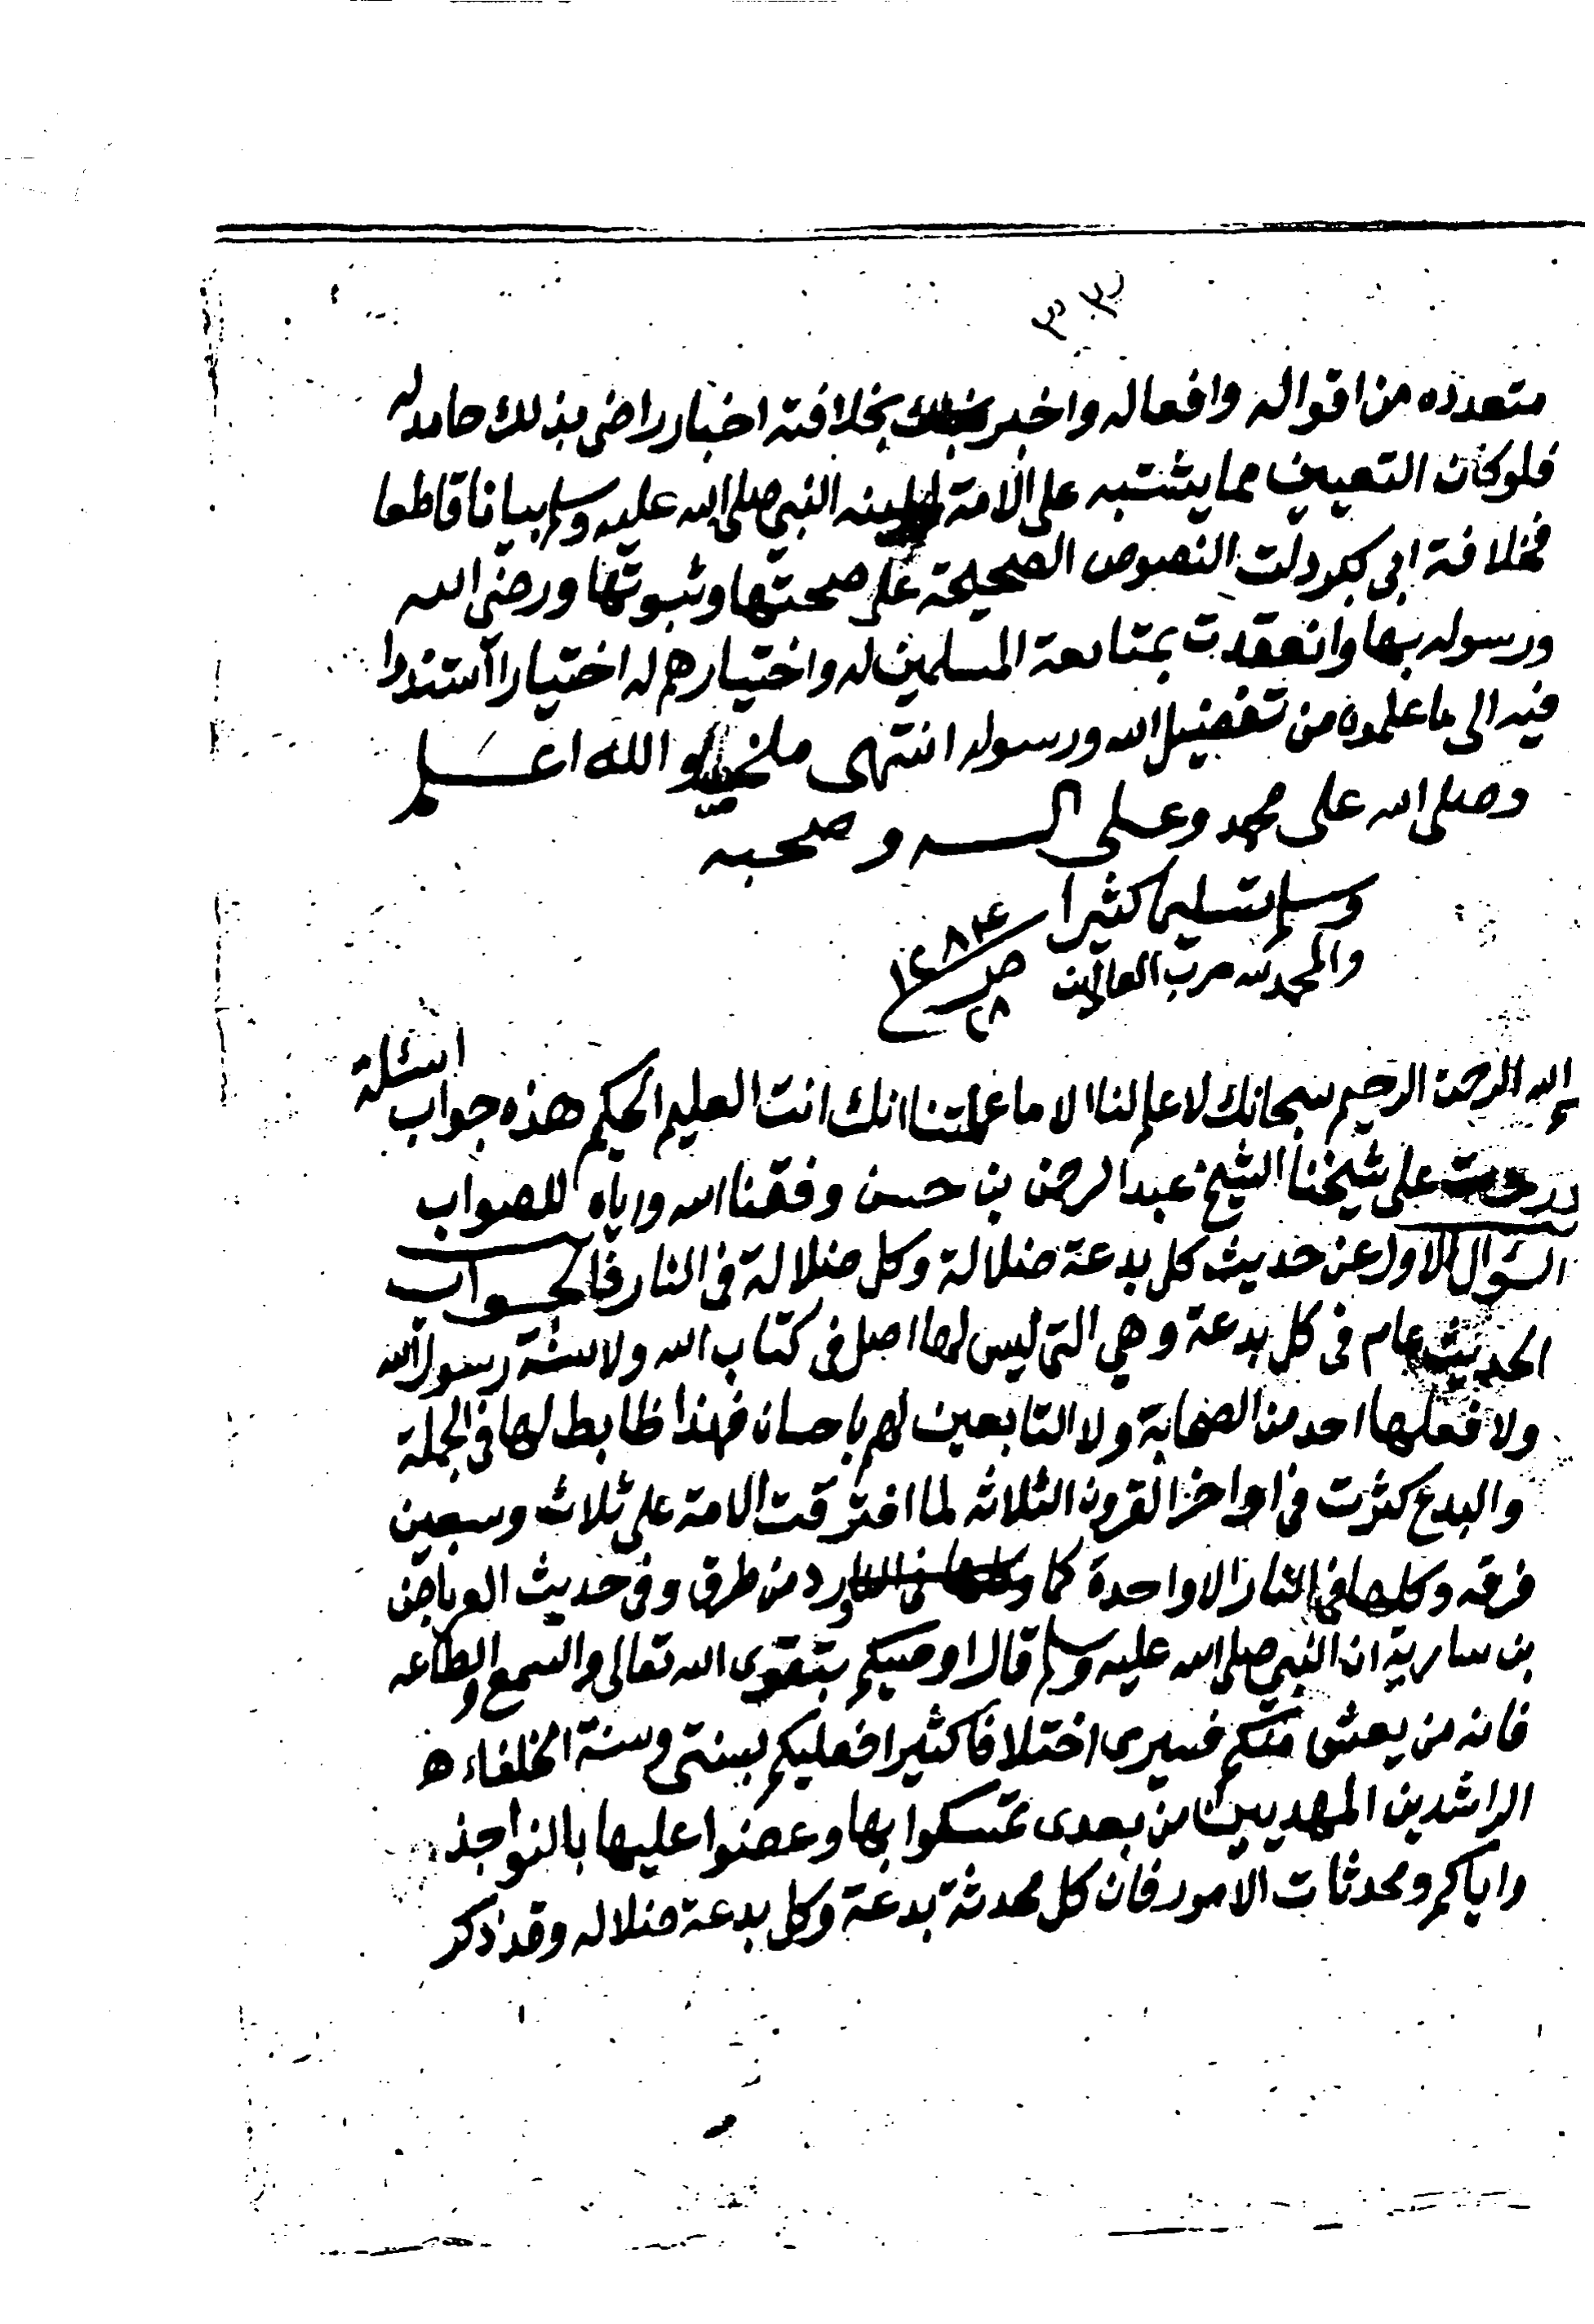 متعدده من اقواله وافعاله واخبر بخلافته اخبار راض بذلك حامد له
فلو كان التعيين مما يشتبه على الامة لبينه النبي صلى الله عليه وسلم بيانا قاطعا
فخلافة ابي بكر دلت النصوص الصحيحة على صحتها وثبوتها ورضى الله
ورسوله بها وانعقدت بمتابعة المسلمين له واختيارهم له اختيارا استندوا
فيه الى ما علموه من تفضيل الله ورسوله انتهى ملخصا والله اعلم
وصلى الله على محمد وعلى اله وصحبه
وسلم تسليما كثيرا
والحمد لله رب العالمين ٢٨ ص ١٢٨٤
الله الرحمن الرحيم سبحانك لا علم لنا الا ما علمتنا انك انت العليم الحكيم هذه جواب اسئلة
وردت على شيخنا الشيخ عبد الرحمن بن حسن وفقنا الله واياه للصواب
السؤال الاول عن حديث كل بدعة ضلالة وكل ضلالة في النار فالجواب
الحديث عام في كل بدعة وهي التي ليس لها اصل في كتاب الله ولا سنة رسول الله
ولا فعلها احد من الصحابة ولا التابعين لهم باحسان فهذا ظابط لها في الجملة
والبدع كثرت في اواخر القرون الثلاثه لما افترقت الامة على ثلاث وسبعين
فرقه وكلها في النار الا واحدة كما ورد من طرق وفي حديث العرباض
بن سارية ان النبي صلى الله عليه وسلم قال اوصيكم بتقوى الله تعالى والسمع والطاعه
فانه من يعش منكم فسيرى اختلافا كثيرا فعليكم بسنتي وسنة الخلفاء ه
الراشدين المهديين من بعدى تمسكوا بها وعضوا عليها بالنواجذ
واياكم ومحدثات الامور فان كل محدثة بدعة وكل بدعة ضلاله وقد ذكر